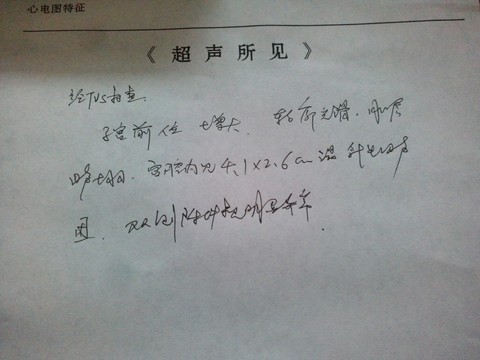 心电图特征
《超声所见》
经TVS扫查
子宫前位 增大 轮廓光滑.肌层
回声均匀.宫腔内见4.1×2.6cm混合性回声
团.双侧附件未见明显异常.